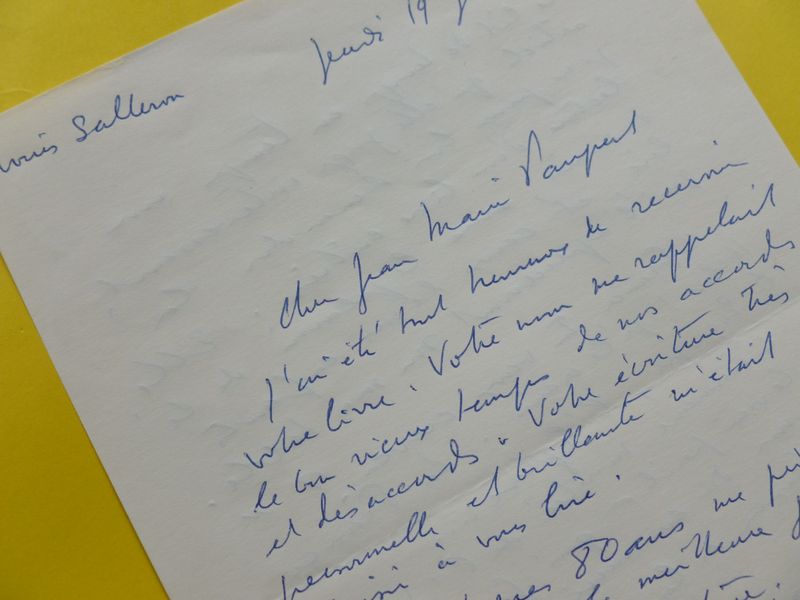 Louis Salleron
Jeudi 19
Cher Jean Marie Paupert
J'ai été tout heureux de recevoir
votre livre. Votre nom me rappelait
le bon vieux temps de nos accords
et désaccords. Votre écriture très
personnelle et brillante m'était
à vous lire.
80 ans me
meilleure